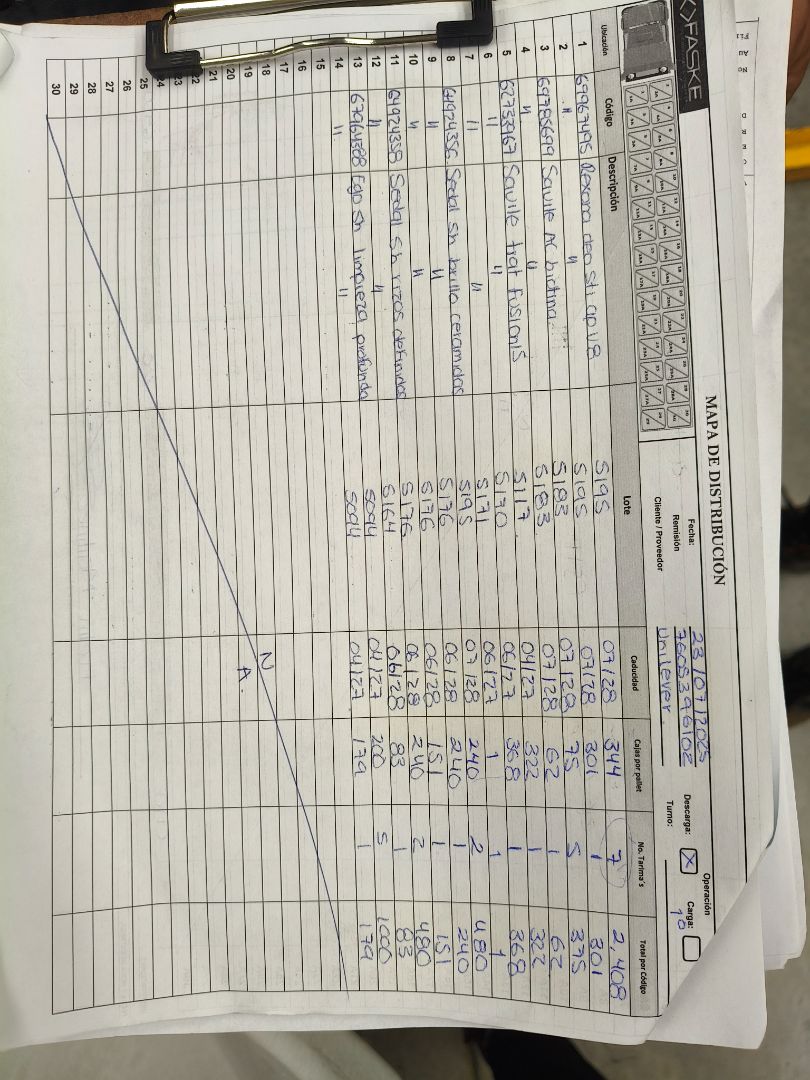 FASKE
MAPA DE DISTRIBUCIÓN
Fecha: 23/07/2025
Remisión 7605396102
Cliente / Proveedor Unilever
Operación
Descarga: X Carga:
Turno: 1º
Ubicación Código Descripción Lote Caducidad Cajas por pallet No. Tarima's Total por Código
1 69967495 Rexona deo sti ap V8 S195 07/28 344 7 2,408
2 " " S195 07/28 301 1 301
3 69785699 Savile AC biotina S183 07/28 75 5 375
4 " " S183 07/28 62 1 62
5 62733967 Savile trat fusion S S117 04/27 322 1 322
6 " " S170 06/27 368 1 368
7 " " S171 06/27 1 1 1
8 64924356 Sedal Sh brillo ceramidas S195 07/28 240 2 480
9 " " S176 06/28 240 1 240
10 " " S176 06/28 151 1 151
11 64924358 Sedal Sh rizos definidos S176 06/28 240 2 480
12 " " S164 06/28 83 1 83
13 67964388 Ego Sh limpieza profunda S094 04/27 200 5 1000
14 " " S094 04/27 179 1 179
15
16
17
18
19
20
21
22
23
24
25
26
27
28
29
30
N A.